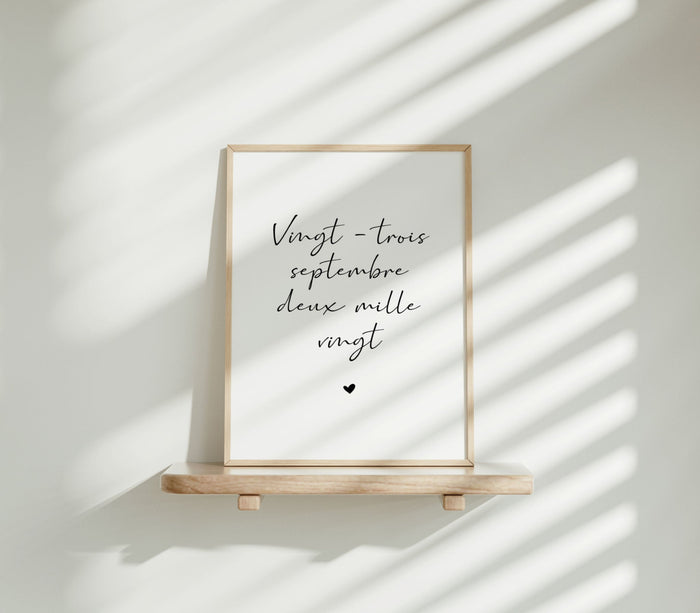 Vingt - trois
septembre
deux mille
vingt